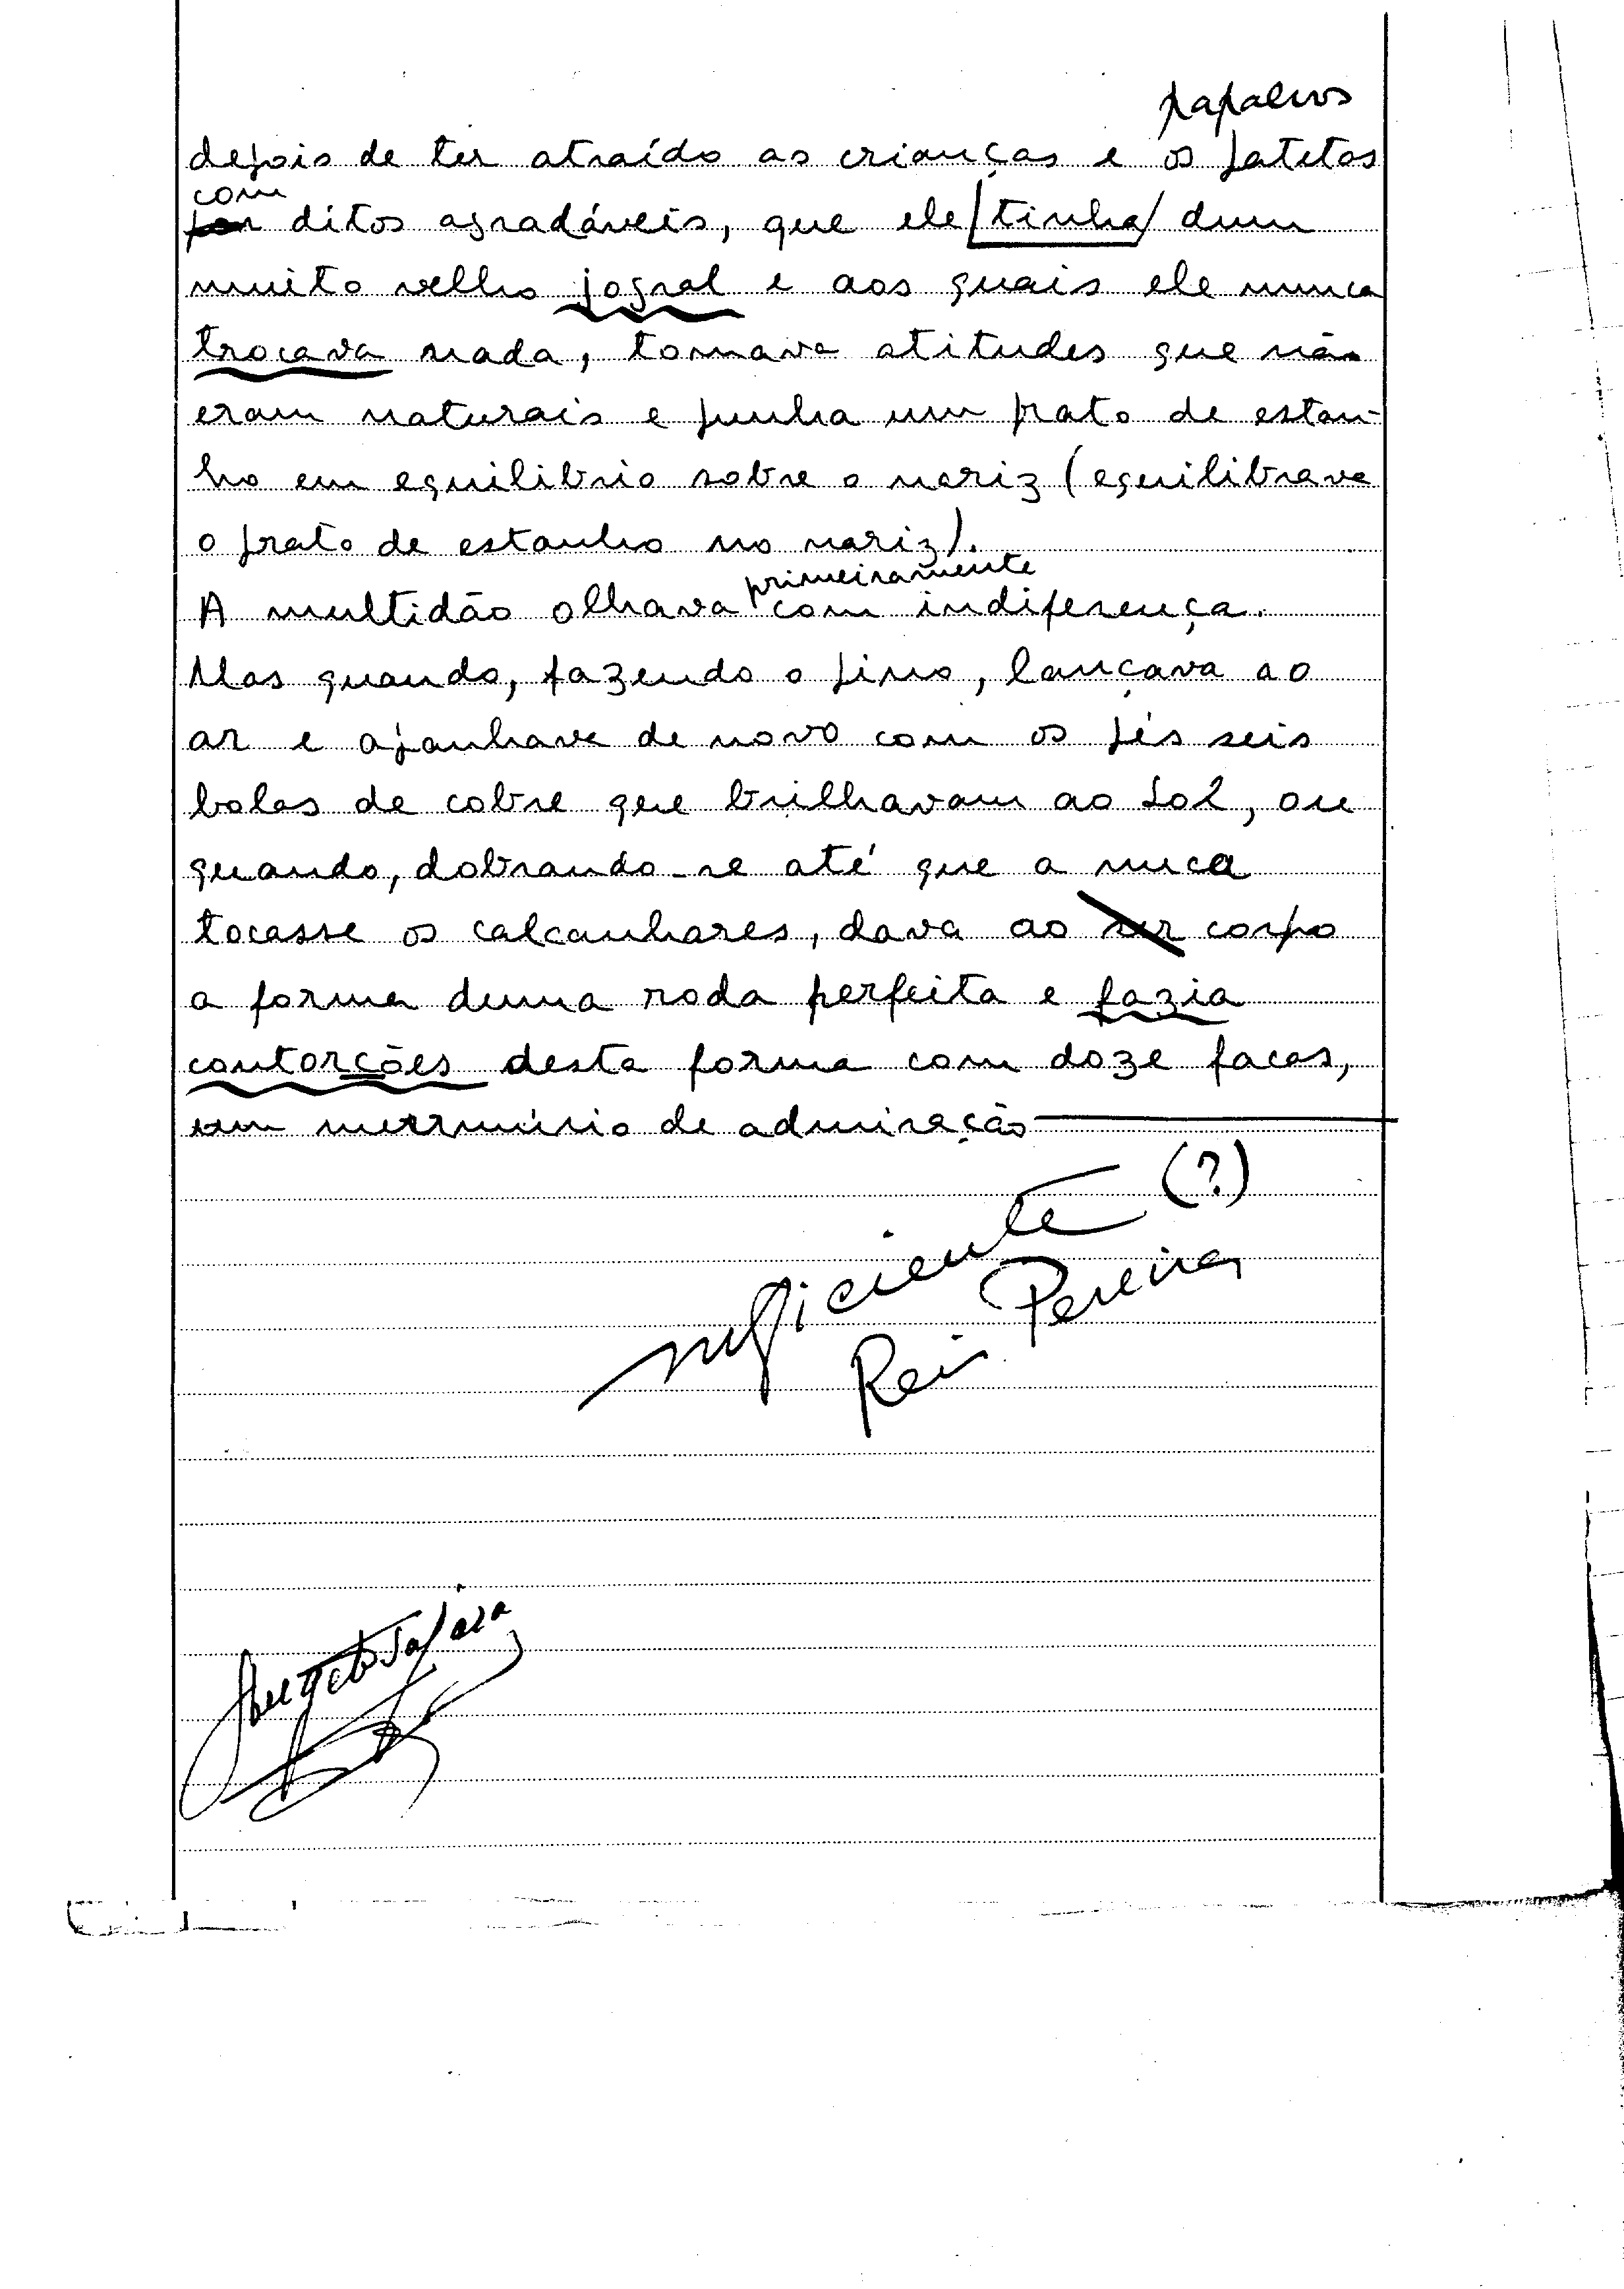 papalvos
depois de ter atraído as crianças e os patetas
com
por ditos agradáveis, que ele tinha dum
muito velho jogral e aos quais ele nunca
trocava nada, tomava atitudes que não
eram naturais e punha um prato de estan-
ho em equilibrio sobre o nariz (equilibrava
o prato de estanho no nariz).
primeiramente
A multidão olhava com indiferença.
Mas quando, fazendo o pino, lançava ao
ar e apanhava de novo com os pés seis
bolas de cobre que brilhavam ao Sol, ou
quando, dobrando-se até que a nuca
tocasse os calcanhares, dava ao seu corpo
a forma duma roda perfeita e fazia
contorções desta forma com doze facas,
um murmúrio de admiração
suficiente (?)
Reis Pereira